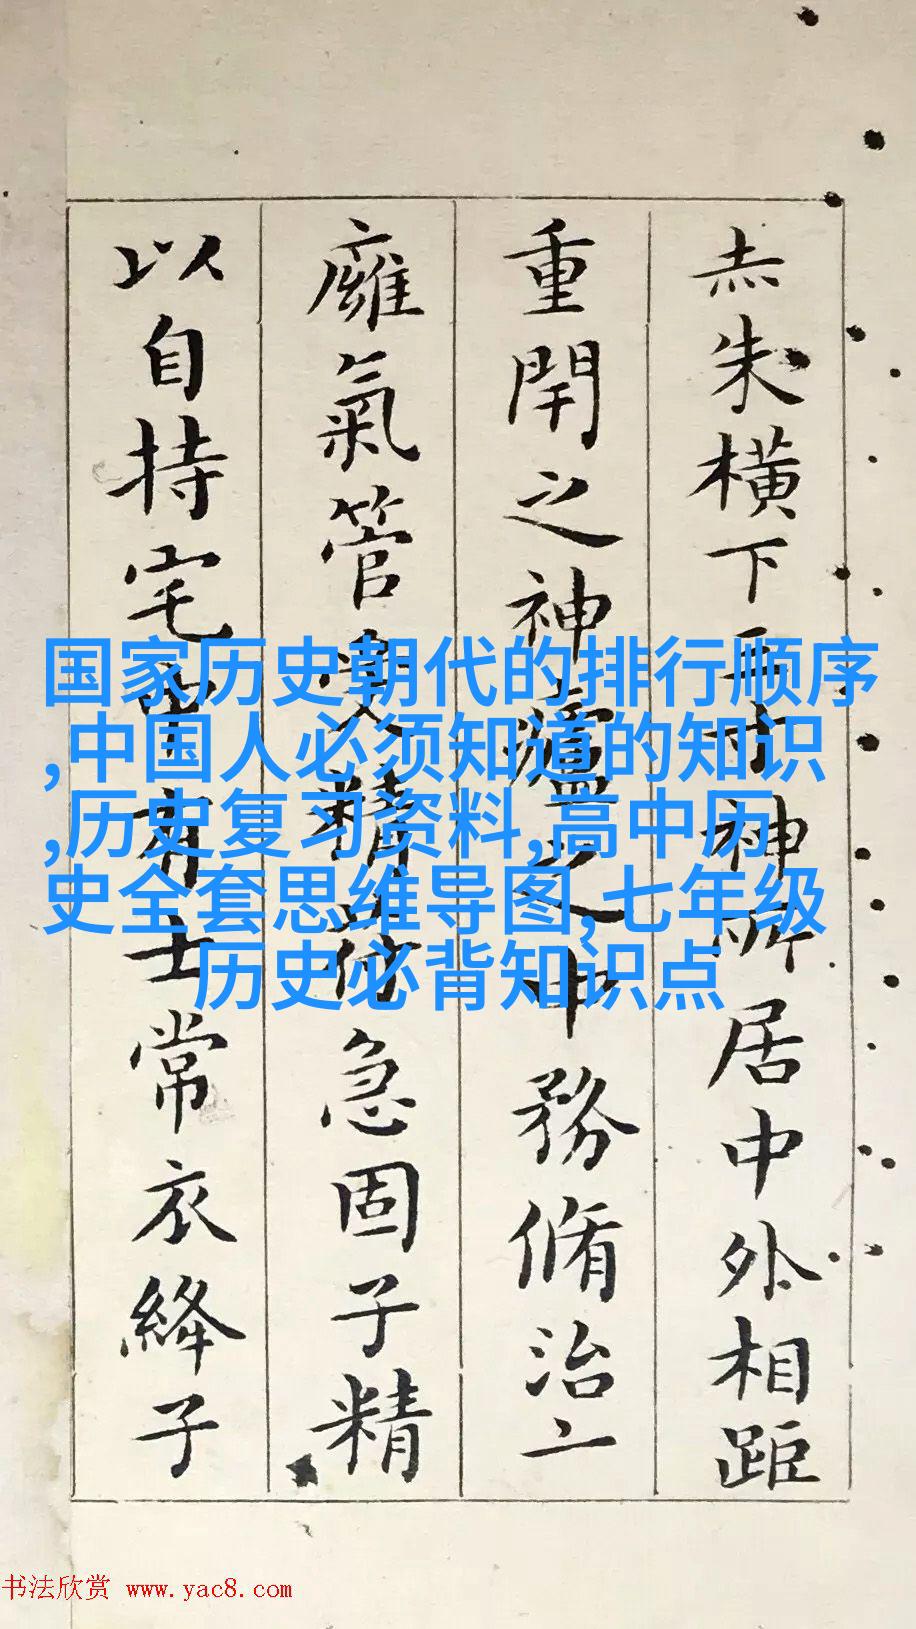 赤朱橫下三寸神所居中外相距
重閇之神廬之中務脩治
廱氣管受精符急固子精
以自持宅中有士常衣絳子
国家历史朝代的排行顺序
,中国人必须知道的知识
,历史复习资料,高中历
史全套思维导图,七年级
历史必背知识点
书法欣赏 www.yac8.com